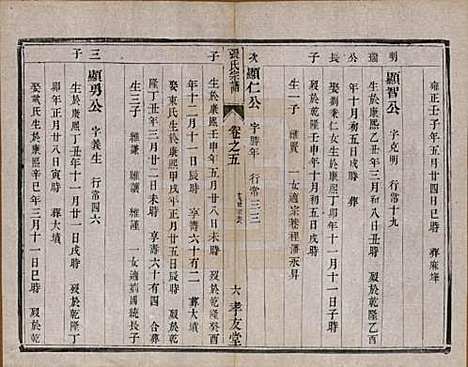 雍正壬子年五月廿四日戌時 葬麻埄
明 顯智公 字克明 行常十九
瑞 生於康熙乙丑年三月初八日丑時 歿於乾隆乙酉
公 年十月初五日戌時
長 娶劉秉仁女生於康熙丁卯年十一月十一日子時
子 歿於乾隆壬申年十月初五日戌時
生一子 維賢 一女適宗巷裡潘永昇
次 顯仁公 字勝年 行常三三
張氏宗譜 卷之五 六 孝友堂
子 生於康熙壬申年五月廿五日辰時 歿於乾隆癸酉
年十二月十一日辰時 享壽六十有二 葬大墳
娶東氏生於康熙甲戌年正月廿五日戌時 歿於乾
隆丁丑年三月廿二日丑時 享壽六十有四 合葬
生三子 維謙 維謹 一女適國統長子
三 顯勇公 字義生 行常四六
子 生於康熙丁丑年十一月廿一日戌時 歿於乾隆丁
卯年正月廿八日寅時 葬大墳
娶戴氏生於康熙辛巳年三月十一日巳時 歿於乾